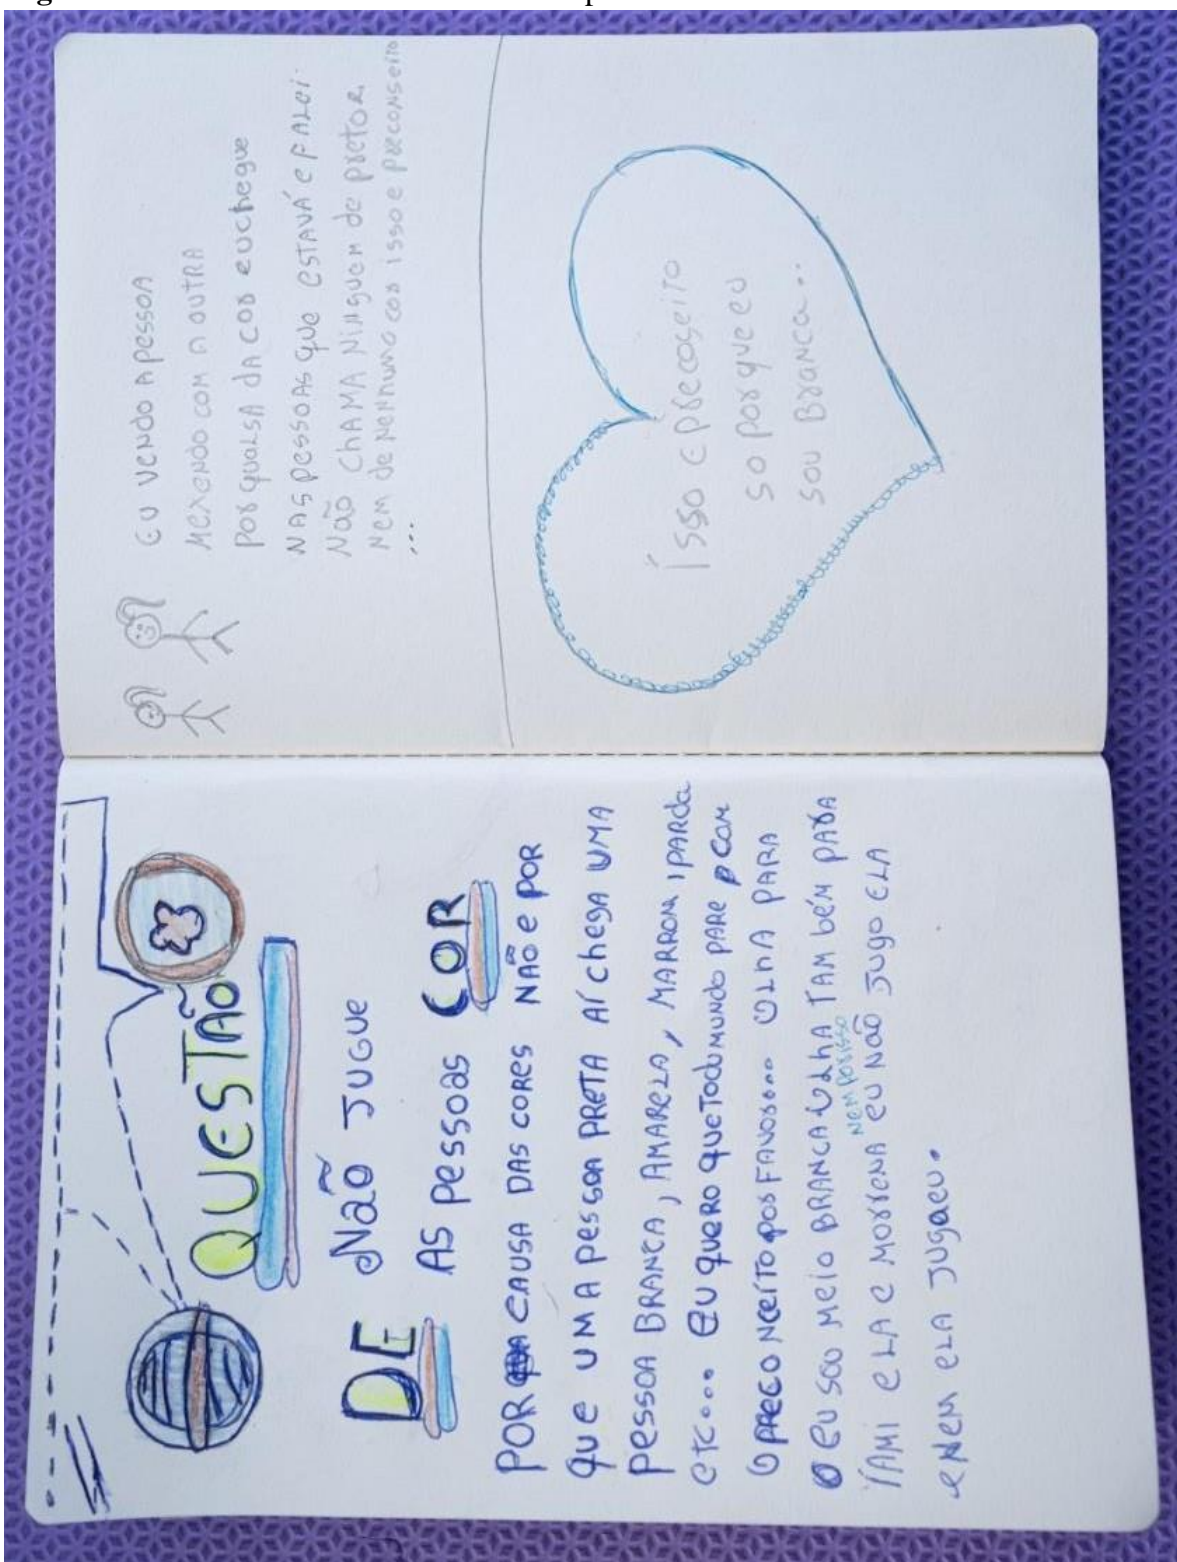 QUESTÃO
DE
COR
Não JUGUE
AS pessoas
POR CAUSA DAS CORES NÃO e POR
que UMA pessoa PRETA Aí chega UMA
pessoa BRANCA, AMARELA, MARROM, PARda
etc... eu quero que Todo mundo pare com
o preconceito por FAVOR... OLHA PARA
eu sou meio BRANCA OLHA TAMbém PARA
NEM POR ISSO
IAMI eLA e MORENA eu NÃO Jugo eLA
e Nem eLA JUgaeu.
eu vendo A pessoa
Mexendo com A OUTRA
por qualsa DA COR euchegue
NAS pessoas que estavá e FALei
Não ChAMA Ninguem de pretor
Nem de Nennuma cor isso e preconseito
...
Ísso e precoseito
so porque eu
sou Branca..